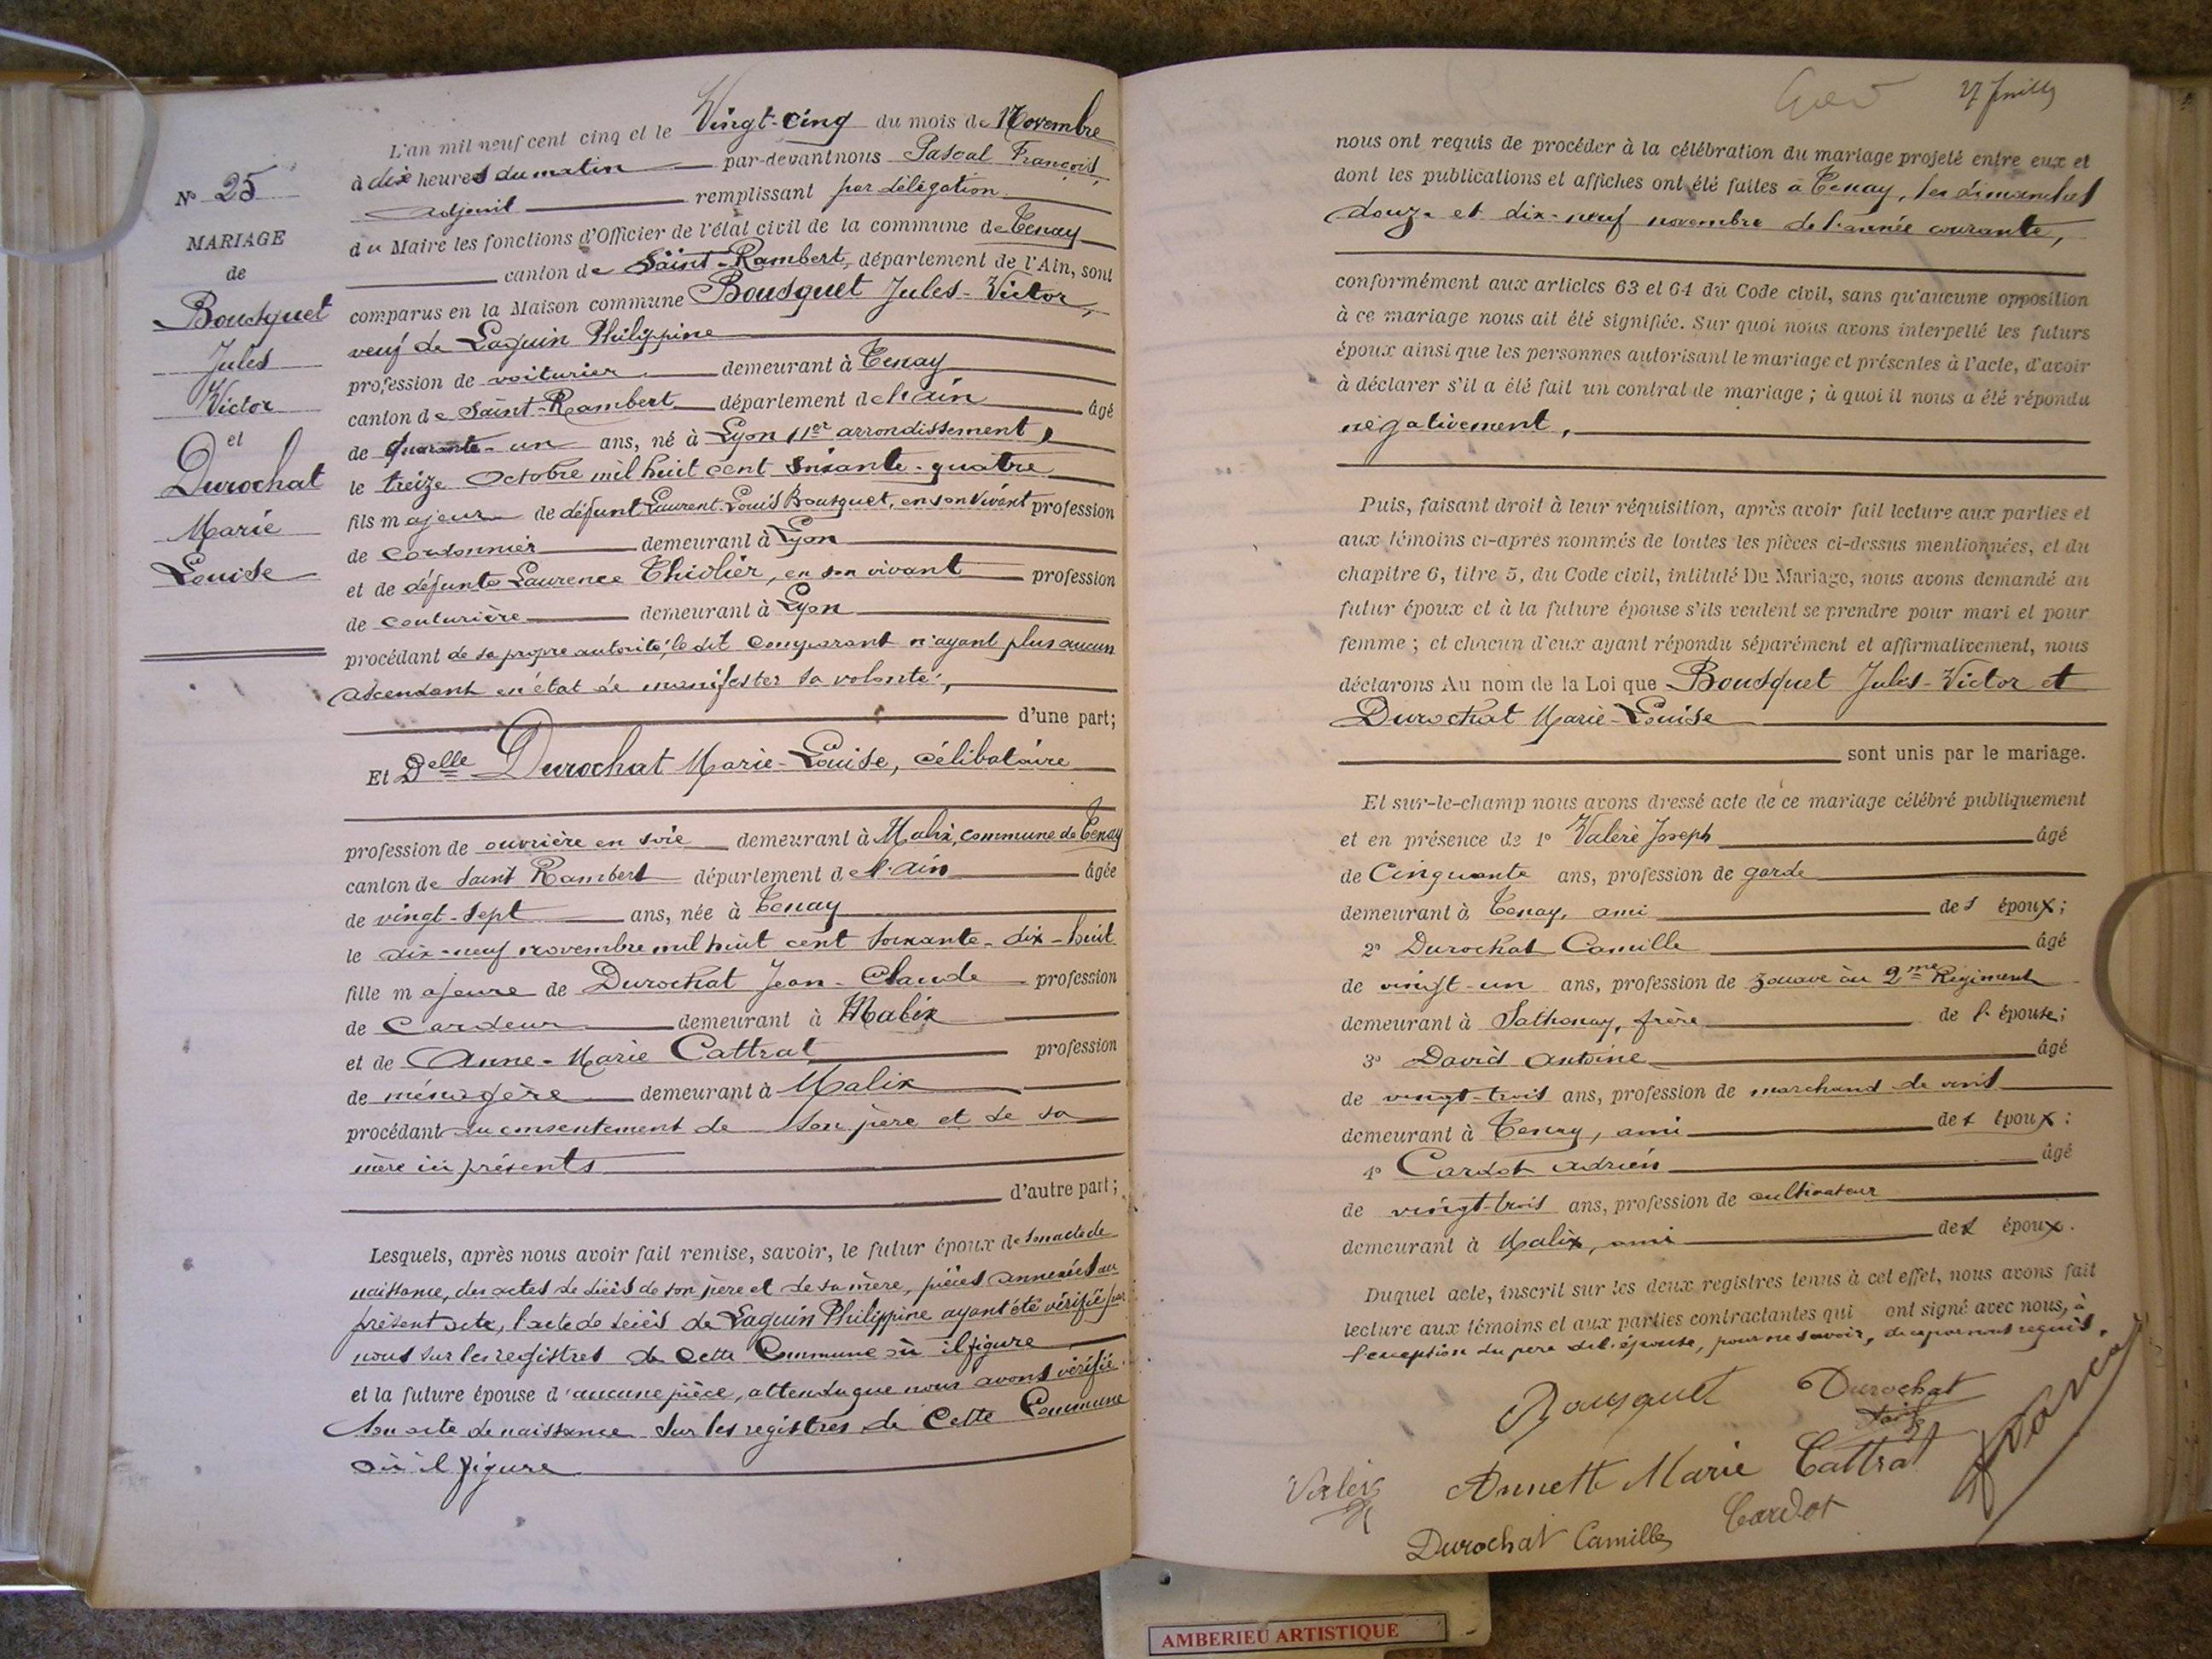 N° 25
MARIAGE
de
Bousquet
Jules
Victor
et
Durochat
Marie
Louise
L'an mil neuf cent cinq et le Vingt-cinq du mois de Novembre
à dix heures du matin par-devant nous Pascal François,
adjoint remplissant par délégation
du Maire les fonctions d'Officier de l'état civil de la commune de Tenay
canton de Saint-Rambert, département de l'Ain, sont
comparus en la Maison commune Bousquet Jules-Victor,
veuf de Laguin Philippine
profession de voiturier demeurant à Tenay
canton de Saint-Rambert département de l'Ain âgé
de quarante-un ans, né à Lyon 11er arrondissement,
le treize Octobre mil huit cent soixante-quatre
fils majeur de défunt Laurent-Louis Bousquet, en son vivant profession
de cordonnier demeurant à Lyon
et de défunte Laurence Thiolier, en son vivant profession
de couturière demeurant à Lyon
procédant de sa propre autorité, le dit comparant n'ayant plus aucun
ascendant en état de manifester sa volonté,
d'une part;
Et Delle Durochat Marie-Louise, célibataire
profession de ouvrière en soie demeurant à Malix, commune de Tenay
canton de Saint Rambert département de l'Ain âgée
de vingt-sept ans, née à Tenay
le dix-neuf novembre mil huit cent soixante-dix-huit
fille majeure de Durochat Jean-Claude profession
de Cardeur demeurant à Malix
et de Anne-Marie Cattrat profession
de ménagère demeurant à Malix
procédant du consentement de son père et de sa
mère ici présents
d'autre part;
Lesquels, après nous avoir fait remise, savoir, le futur époux de son acte de
naissance, des actes de décès de son père et de sa mère, pièces annexées au
présent acte, l'acte de décès de Laguin Philippine ayant été vérifié par
nous sur les registres de cette Commune où il figure
et la future épouse d'aucune pièce, attendu que nous avons vérifié
son acte de naissance sur les registres de cette Commune
où il figure
27 Juillet
nous ont requis de procéder à la célébration du mariage projeté entre eux et
dont les publications et affiches ont été faites à Tenay, les dimanches
douze et dix-neuf novembre de l'année courante,
conformément aux articles 63 et 64 du Code civil, sans qu'aucune opposition
à ce mariage nous ait été signifiée. Sur quoi nous avons interpellé les futurs
époux ainsi que les personnes autorisant le mariage et présentes à l'acte, d'avoir
à déclarer s'il a été fait un contrat de mariage; à quoi il nous a été répondu
négativement,
Puis, faisant droit à leur réquisition, après avoir fait lecture aux parties et
aux témoins ci-après nommés de toutes les pièces ci-dessus mentionnées, et du
chapitre 6, titre 5, du Code civil, intitulé Du Mariage, nous avons demandé au
futur époux et à la future épouse s'ils veulent se prendre pour mari et pour
femme; et chacun d'eux ayant répondu séparément et affirmativement, nous
déclarons Au nom de la Loi que Bousquet Jules-Victor et
Durochat Marie-Louise
sont unis par le mariage.
Et sur-le-champ nous avons dressé acte de ce mariage célébré publiquement
et en présence de 1° Valéré Joseph âgé
de Cinquante ans, profession de garde
demeurant à Tenay, ami des époux;
2° Durochat Camille âgé
de vingt-un ans, profession de zouave au 2me Régiment
demeurant à Sathonay, frère de l'épouse;
3° David Antoine âgé
de vingt-trois ans, profession de marchand de vins
demeurant à Tenay, ami des époux;
4° Cardot Adrien âgé
de vingt-trois ans, profession de cultivateur
demeurant à Malix, ami des époux.
Duquel acte, inscrit sur les deux registres tenus à cet effet, nous avons fait
lecture aux témoins et aux parties contractantes qui ont signé avec nous, à
l'exception du père de l'épouse, pour ne savoir, de ce par nous requis.
Bousquet Durochat
Annette Marie Cattrat
Cardot
Durochat Camille
AMBERIEU ARTISTIQUE